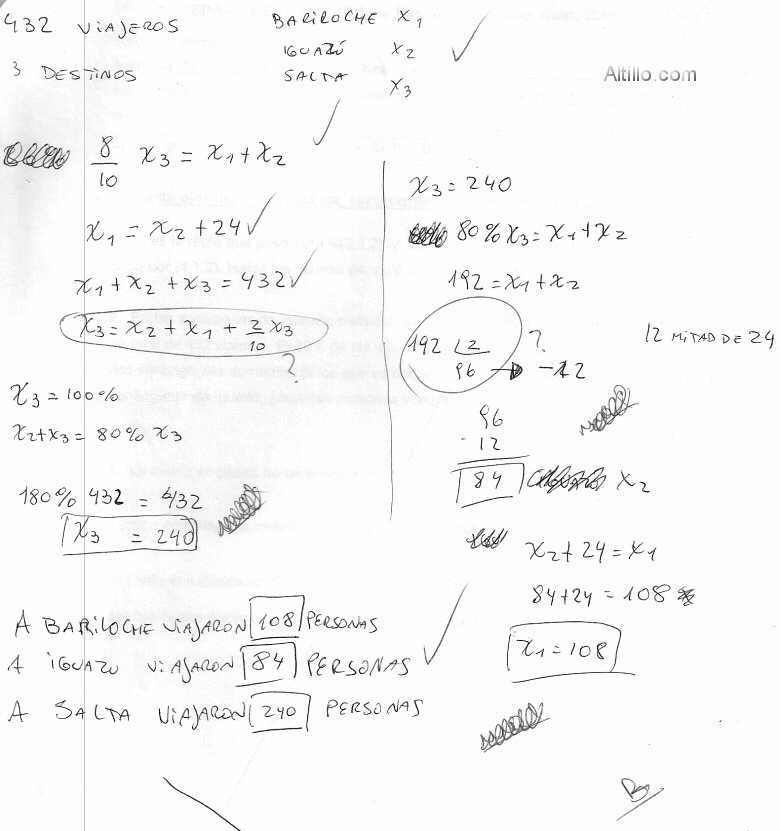 432 VIAJEROS
3 DESTINOS
BARILOCHE X1
IGUAZÚ X2
SALTA X3
Altillo.com
8/10 X3 = X1 + X2
X1 = X2 + 24
X1 + X2 + X3 = 432
X3 = X2 + X1 + 2/10 X3
?
X3 = 100%
X2 + X3 = 80% X3
180% 432 = 432
X3 = 240
X3 = 240
80% X3 = X1 + X2
192 = X1 + X2
192 2 ?
96 → -12
12 MITAD DE 24
96
- 12
84 X2
X2 + 24 = X1
84 + 24 = 108
X1 = 108
A BARILOCHE VIAJARON 108 PERSONAS
A IGUAZU VIAJARON 84 PERSONAS
A SALTA VIAJARON 240 PERSONAS
B-